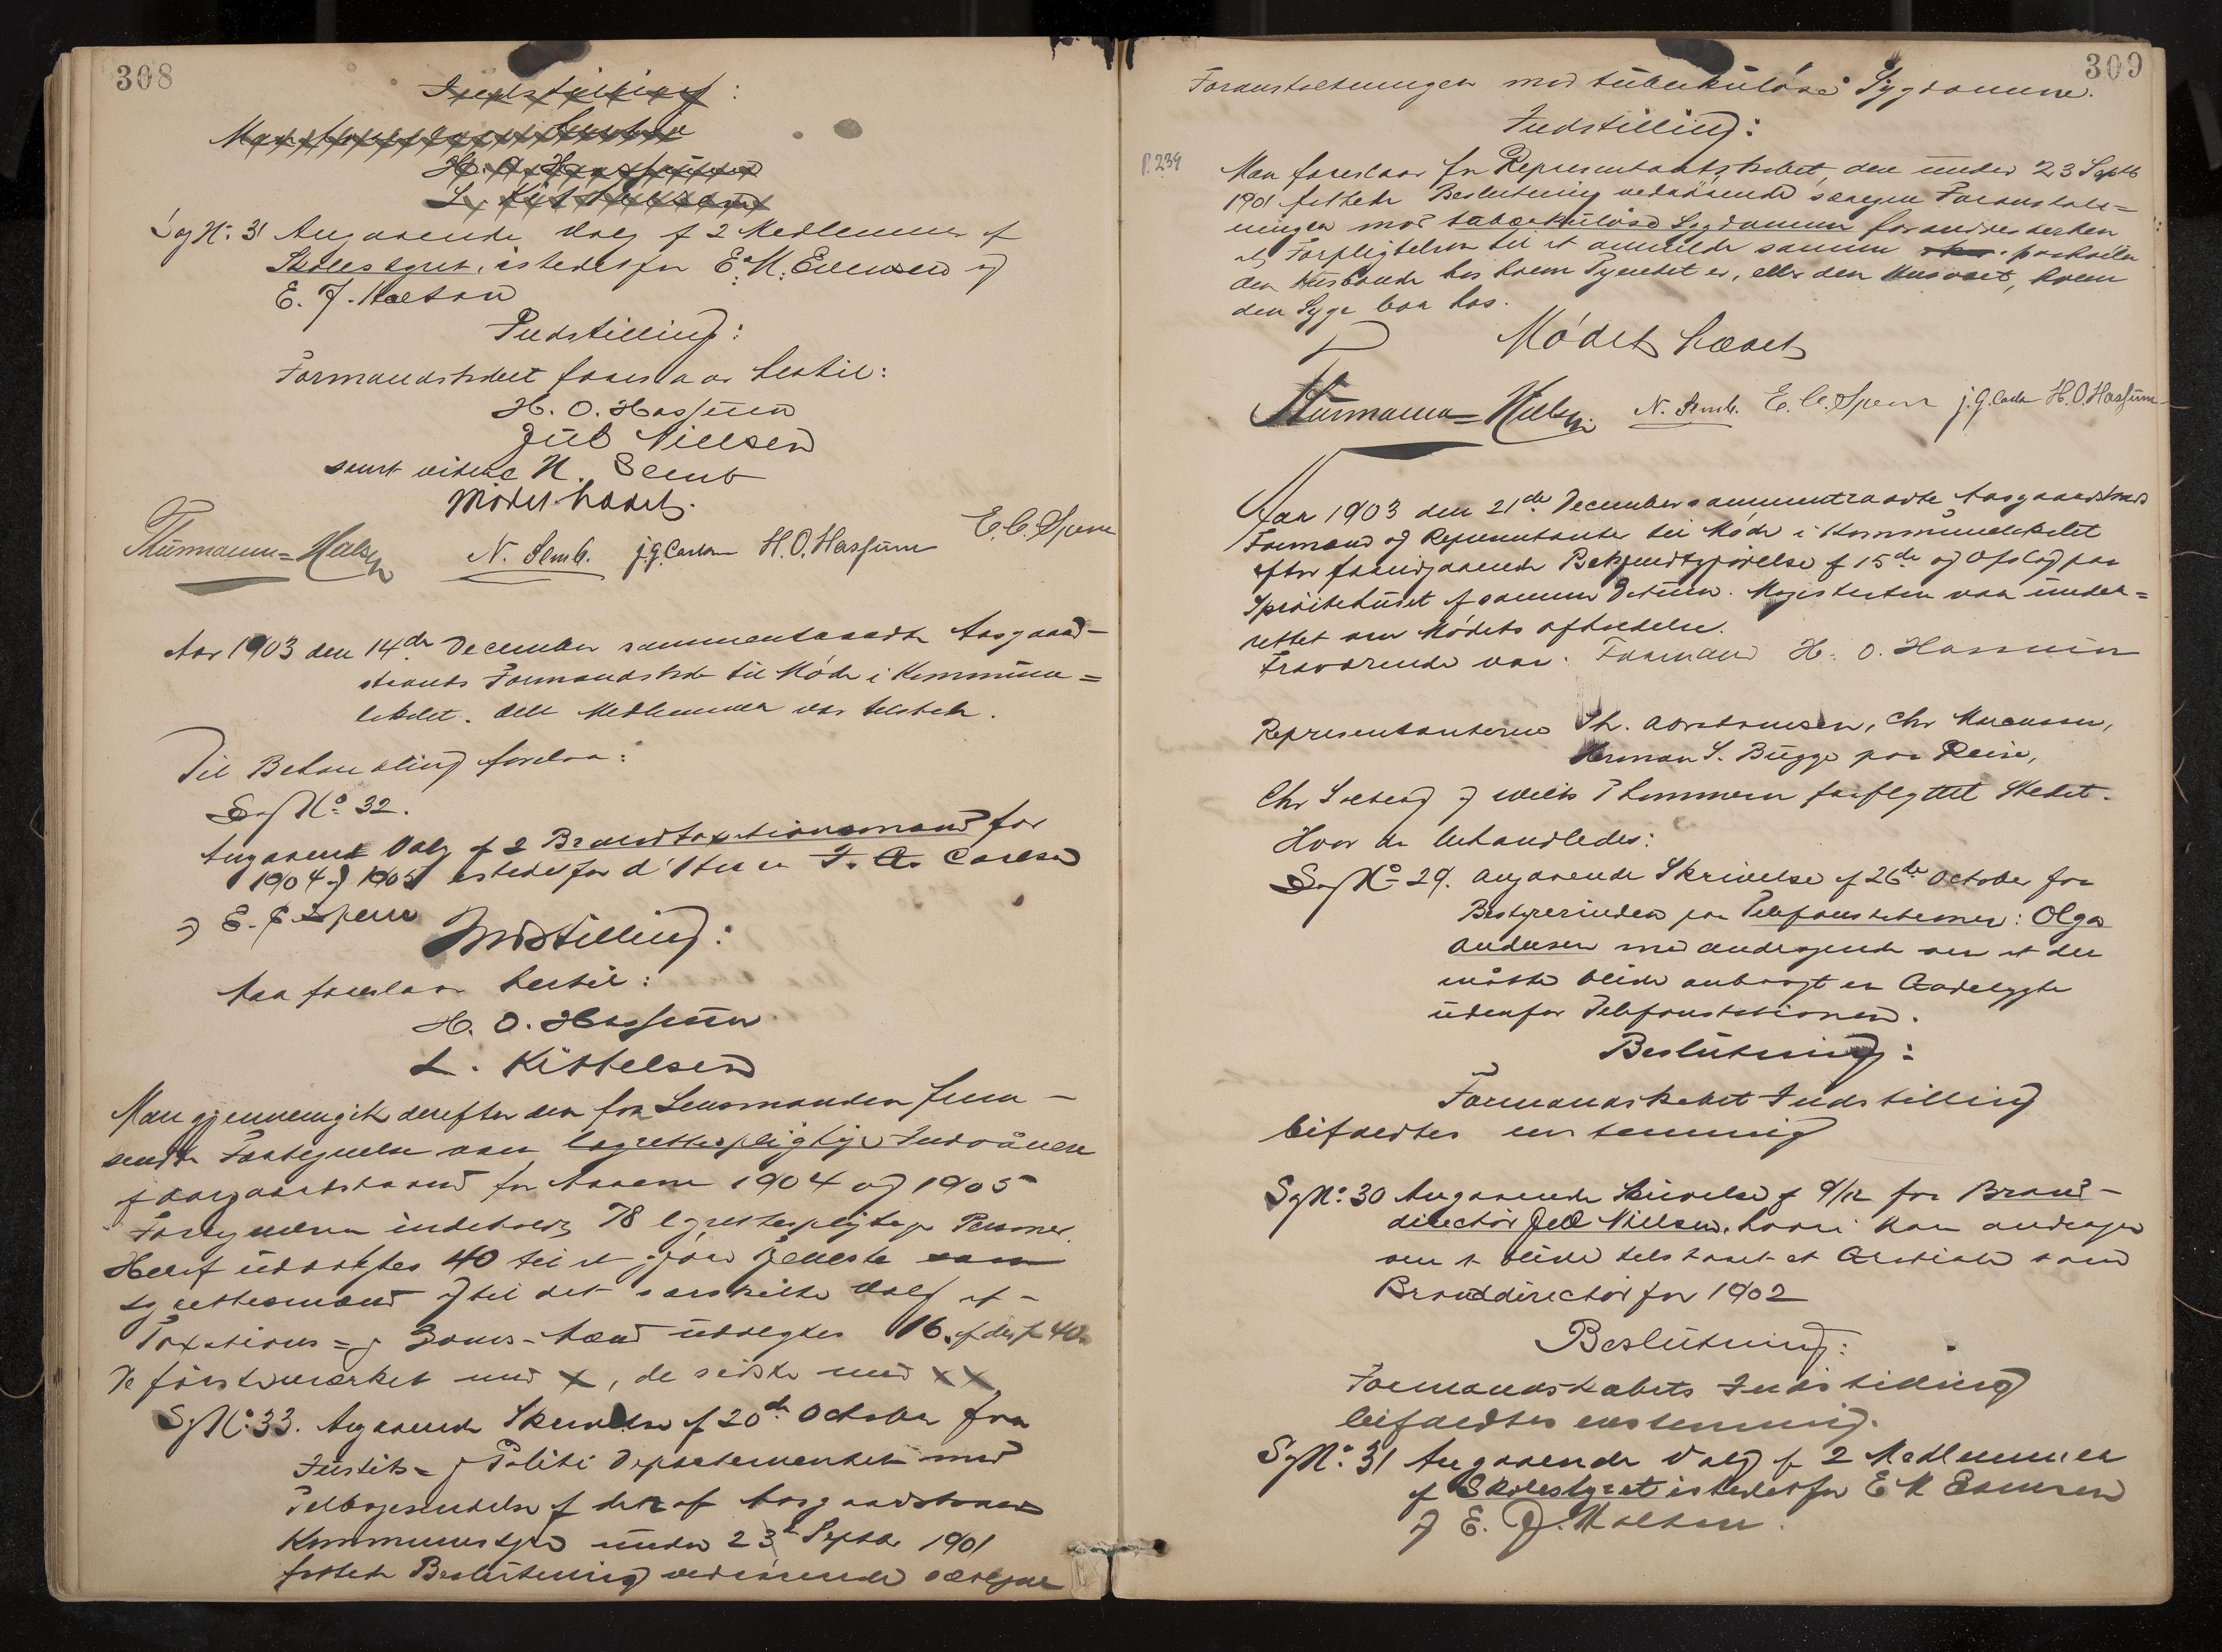 308
Indstilling:
H. O. Hassum
L. Kittelsen
Sag No. 31 Angaaende Valg af 2 Medlemmer af
Skolestyret, istedetfor E. M. Evensen og
E. J. Holtan
Indstilling:
Formandskabet foreslaar hertil:
H. O. Hassum
Jul Nielsen
samt N. Semb
Mødet hævet.
Thurmann=Nielsen N. Semb. J. G. Carlsen H. O. Hassum E. C. Spern
Aar 1903 den 14de December sammentraadte Aasgaard-
strands Formandskab til Møde i Kommune=
lokalet. Alle Medlemmer var tilstede.
Til Behandling forelaa:
Sag No. 32.
Angaaende Valg af 2 Brandtaxationsmænd for
1904 og 1905 istedetfor d'Herrer J. G. Carlsen
og E. C. Spern
Indstilling:
Man foreslaar hertil:
H. O. Hassum
L. Kittelsen
Man gjennemgik derefter den fra Lensmanden frem-
sendte Fortegnelse over lagrettespligtige Indvånere
af Aasgaardstrand for Aarene 1904 og 1905
Fortegnelsen indeholdt 78 lagrettespligtige Personer.
Heraf udvalgtes 40 til at gjøre Tjeneste som
Lagrettesmænd og til det særskilte Valg af -
Taxations= og Skjøns-Mænd udvalgtes 16 af disse 40.
De første mærket med X, de sidste med XX
Sag No. 33. Angaaende Skrivelse af 20de October fra
Justits- og Politi Departementet med
Tilbagesendelse af den af Aasgaardstrands
Kommunestyre under 23de Septbr 1901
fattede Beslutning vedrørende særegne
309
Foranstaltninger mod tuberkuløse Sygdomme.
Indstilling:
P. 239
Man foreslaar for Representantskabet, den under 23 Septb
1901 fattede Beslutning vedrørende særegne Foranstalt=
ninger mod tuberkuløse Sygdomme forandres derhen
at Forpligtelsen til at anmelde samme paahviler
den Husbonde hos hvem Tyendet er, eller den Husvært, hvem
den Syge bor hos.
Mødet hævet
Thurmann=Nielsen N. Semb. E. C. Spern J. G. Carlsen H. O. Hassum
Aar 1903 den 21de December sammentraadte Aasgaardstrands
Formænd og Representanter til Møde i Kommunelokalet
efter forudgaaende Bekjendtgjørelse af 15de og Opslag paa
Sprøitehuset af samme Datum. Magistraten var under=
rettet om Mødets afholdelse.
Fraværende var: Formand H. O. Hassum
Representanterne Th. Abrahamsen, Chr Marcussen,
Herman S. Bugge paa Reise,
Chr Solberg og Wilh Thommesen forflyttet Stedet.
Hvor da behandledes:
Sag No. 29. Angaaende Skrivelse af 26de October fra
Bestyrerinden paa Telefonstationen: Olga
Andersen med andragende om at der
måtte blive anbragt en Gadelygte
udenfor Telefonstationen.
Beslutning:
Formandskabets Indstilling
bifaldtes enstemmig
Sag No. 30 Angaaende Skrivelse af 9/12 fra Brand-
direktør Jul Nielsen, hvori han andrager
om at blive tilstaaet et Gratiale som
Branddirektør for 1902
Beslutning:
Formandskabets Indstilling
bifaldtes enstemmig.
Sag No. 31 Angaaende Valg af 2 Medlemmer
af Skolestyret istedetfor E M Evensen
og E. J. Holtan.